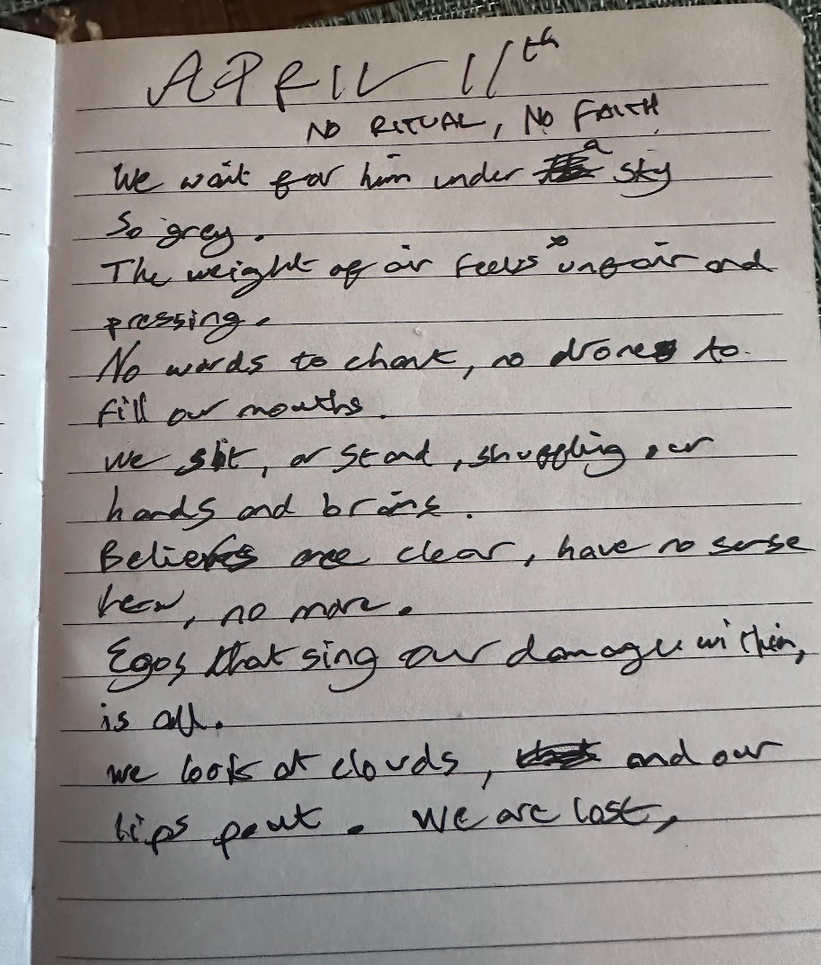 APRIL 11th
NO RITUAL, NO FAITH
We wait for him under a sky
So grey.
The weight of air feels unfair and
pressing.
No words to chant, no drone to
fill our mouths.
we sit, or stand, shuffling our
hands and brains.
Beliefs are clear, have no sense
here, no more.
Egos that sing our damage within,
is all.
we look at clouds, and our
lips pout. We are lost,